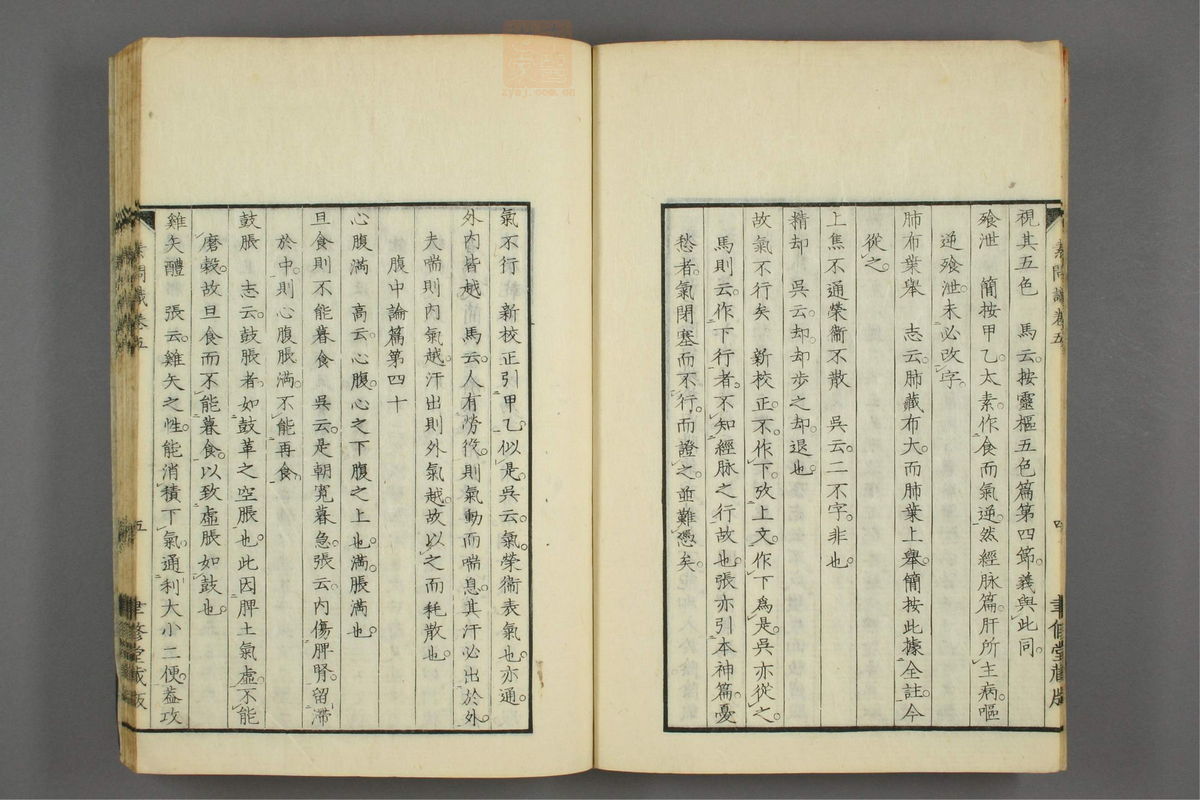 視其五色　馬云按靈樞五色篇第四節義與此同
飱泄　簡按甲乙太素作食而氣逆然經脉篇肝所主病嘔
逆飱泄未必改字
肺布葉舉　志云肺藏布大而肺葉上舉簡按此據全註今
從之
上焦不通榮衞不散　吳云二不字非也
精却　吳云却却步之却退也
故氣不行矣　新校正不作下攷上文作下爲是吳亦從之
馬則云作下行者不知經脉之行故也張亦引本神篇憂
愁者氣閉塞而不行而證之並難憑矣
素問識卷五
聿修堂藏版
氣不行　新校正引甲乙似是吳云氣榮衞表氣也亦通
外內皆越　馬云人有勞役則氣動而喘息其汗必出於外
夫喘則內氣越汗出則外氣越故以之而耗散也
腹中論篇第四十
心腹滿　高云心腹心之下腹之上也滿脹滿也
旦食則不能暮食　吳云是朝寬暮急張云內傷脾腎留滯
於中則心腹脹滿不能再食
鼓脹　志云鼓脹者如鼓革之空脹也此因脾土氣虛不能
磨穀故旦食而不能暮食以致虛脹如鼓也
雞矢醴　張云雞矢之性能消積下氣通利大小二便葢攻
素問識卷五
五
聿修堂藏版